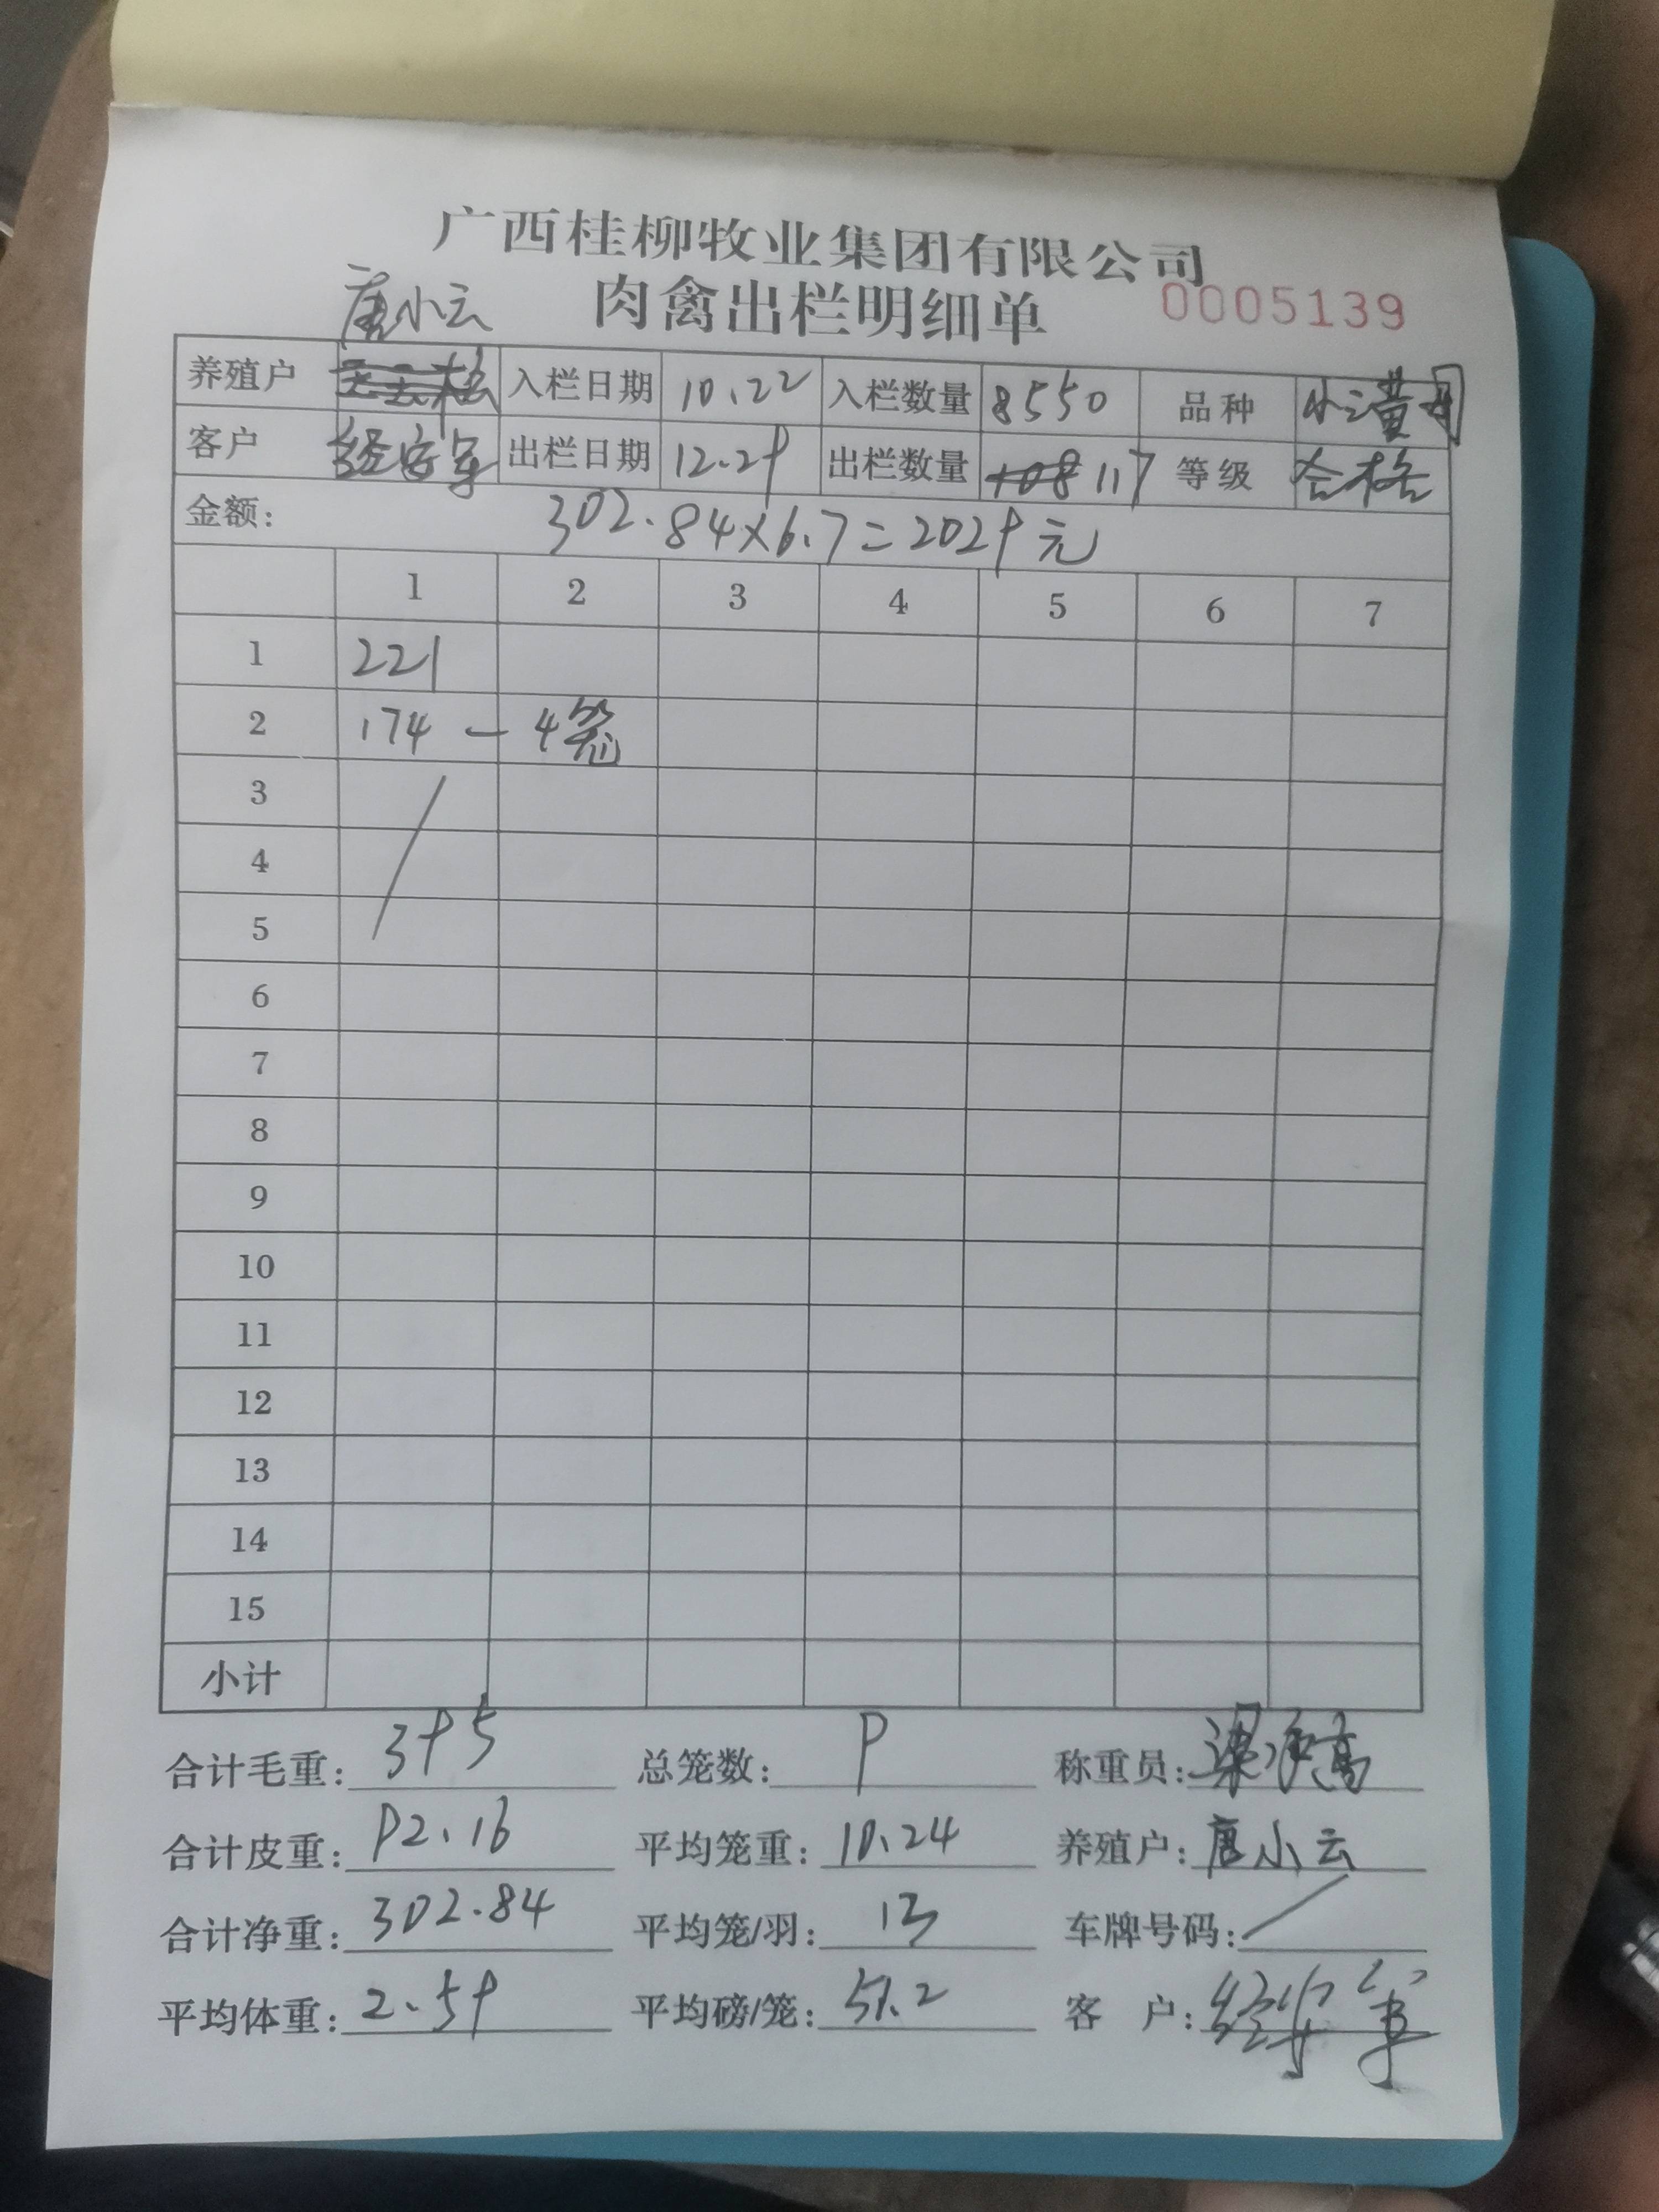 广西桂柳牧业集团有限公司
唐小云 肉禽出栏明细单 0005139
养殖户 入栏日期 10.22 入栏数量 8550 品种 小二黄母
客户 出栏日期 12.29 出栏数量 117 等级 合格
金额: 302.84×6.7=2029元
1 2 3 4 5 6 7
1 221
2 174 — 4笼
3
4
5
6
7
8
9
10
11
12
13
14
15
小计
合计毛重: 395 总笼数: 9 称重员: 梁 高
合计皮重: 92.16 平均笼重: 10.24 养殖户: 唐小云
合计净重: 302.84 平均笼/羽: 13 车牌号码: /
平均体重: 2.59 平均磅/笼: 51.2 客 户: 军